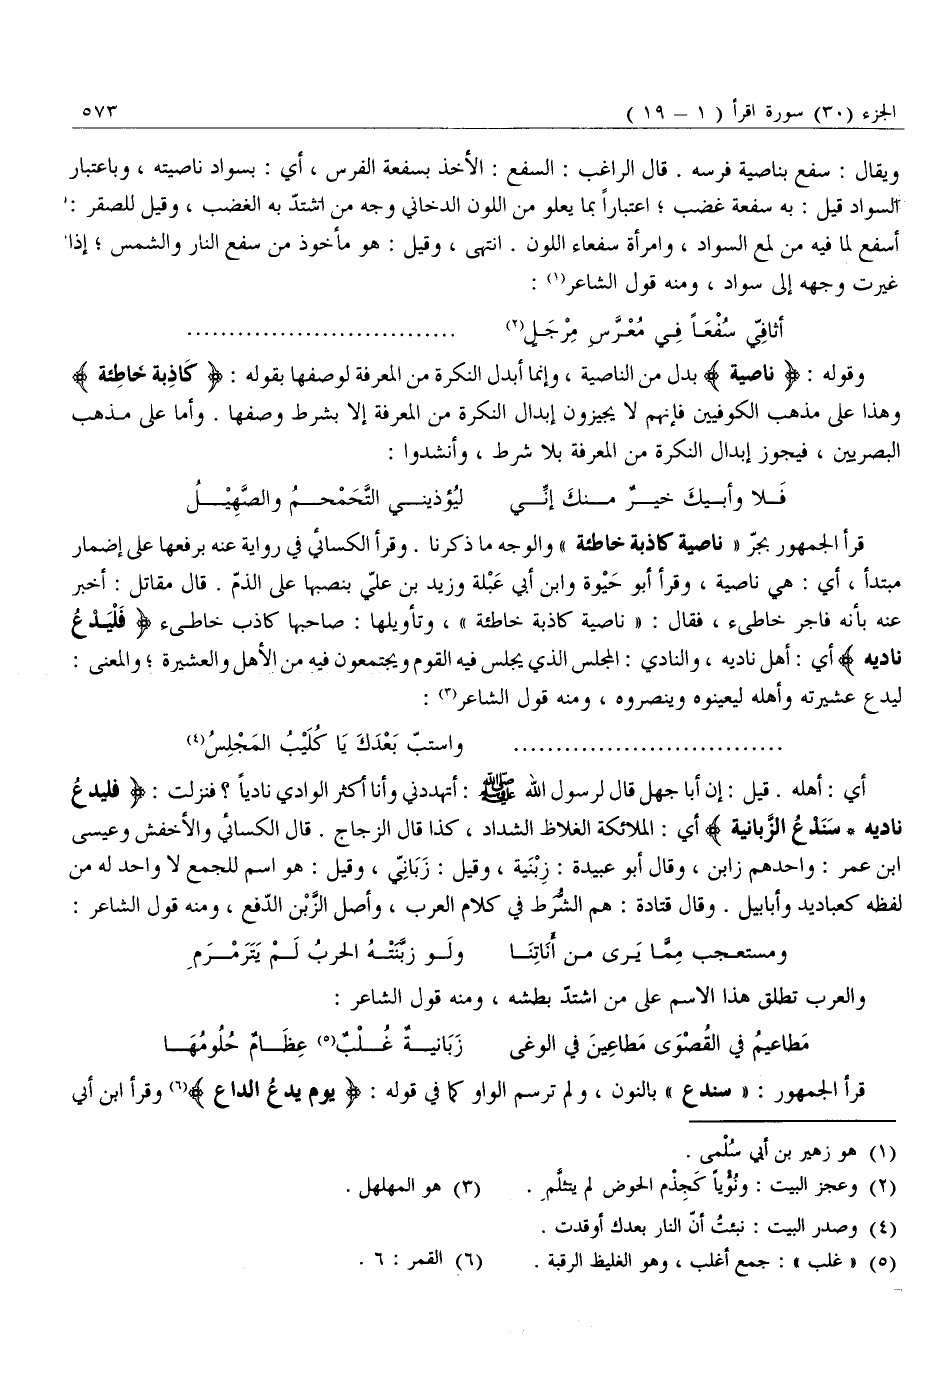 الجزء (٣٠) سورة اقرأ ( ١ – ١٩ ) ٥٧٣
ويقال : سفع بناصية فرسه . قال الراغب : السفع : الأخذ بسفعة الفرس ، أي : بسواد ناصيته ، وباعتبار
السواد قيل : به سفعة غضب ؛ اعتباراً بما يعلو من اللون الدخاني وجه من اشتدّ به الغضب ، وقيل للصقر :
أسفع لما فيه من لمع السواد ، وامرأة سفعاء اللون . انتهى ، وقيل : هو مأخوذ من سفع النار والشمس ؛ إذا
غيرت وجهه إلى سواد ، ومنه قول الشاعر(١) :
أثافِيّ سُفْعَاً فِي مُعْرَّسِ مِرْجَلٍ(٢) ................................
وقوله : ﴿ ناصية ﴾ بدل من الناصية ، وإنما أبدل النكرة من المعرفة لوصفها بقوله : ﴿ كَاذِبة خَاطِئة ﴾
وهذا على مذهب الكوفيين فإنهم لا يجيزون إبدال النكرة من المعرفة إلا بشرط وصفها . وأما على مذهب
البصريين ، فيجوز إبدال النكرة من المعرفة بلا شرط ، وأنشدوا :
فَلا وأبيكَ خيرٌ منكَ إنِّي لَيُؤذيني التَّحَمْحمُ والصَّهِيْلُ
قرأ الجمهور بجرّ « ناصية كاذبة خاطئة » والوجه ما ذكرنا . وقرأ الكسائي في رواية عنه برفعها على إضمار
مبتدأ ، أي : هي ناصية ، وقرأ أبو حَيْوة وابن أبي عَبْلة وزيد بن عليّ بنصبها على الذمّ . قال مقاتل : أخبر
عنه بأنه فاجر خاطىء ، فقال : « ناصية كاذبة خاطئة » ، وتأويلها : صاحبها كاذب خاطىء ﴿ فَلْيَدْعُ
ناديه ﴾ أي : أهل ناديه ، والنادي : المجلس الذي يجلس فيه القوم ويجتمعون فيه من الأهل والعشيرة ؛ والمعنى :
ليدع عشيرته وأهله ليعينوه وينصروه ، ومنه قول الشاعر(٣) :
................................ واستبّ بَعْدَكَ يَا كُلَيْبُ المَجْلِسُ(٤)
أي : أهله . قيل : إن أبا جهل قال لرسول الله ﷺ : أتهددني وأنا أكثر الوادي نادياً ؟ فنزلت : ﴿ فليدعُ
ناديه * سَنَدْعُ الزَّبانية ﴾ أي : الملائكة الغلاظ الشداد ، كذا قال الزجاج . قال الكسائي والأخفش وعيسى
ابن عمر : واحدهم زابن ، وقال أبو عبيدة : زِبْنَية ، وقيل : زَبَانِيّ ، وقيل : هو اسم للجمع لا واحد له من
لفظه كعباديد وأبابيل . وقال قتادة : هم الشُّرط في كلام العرب ، وأصل الزَّبْن الدّفع ، ومنه قول الشاعر :
ومستعجب مِمَّا يَرى من أَنَاتِنَا ولَو زبَّنَتْهُ الحربُ لَمْ يَتَرَمْرَمِ
والعرب تطلق هذا الاسم على من اشتدّ بطشه ، ومنه قول الشاعر :
مَطاعيمُ في القُصْوَى مَطاعِينَ في الوغى زَبَانيةٌ غُلْبٌ(٥) عِظَامٌ حُلُومُهَا
قرأ الجمهور : « سندع » بالنون ، ولم ترسم الواو كما في قوله : ﴿ يوم يدعُ الداع ﴾(٦) وقرأ ابن أبي
(١) هو زهير بن أبي سُلْمى .
(٢) وعجز البيت : ونُؤْياً كَجِذْم الحوض لم يتثلَّمِ . (٣) هو المهلهل .
(٤) وصدر البيت : نبئتُ أنّ النار بعدك أوقدت .
(٥) « غلب » : جمع أغلب ، وهو الغليظ الرقبة . (٦) القمر : ٦ .